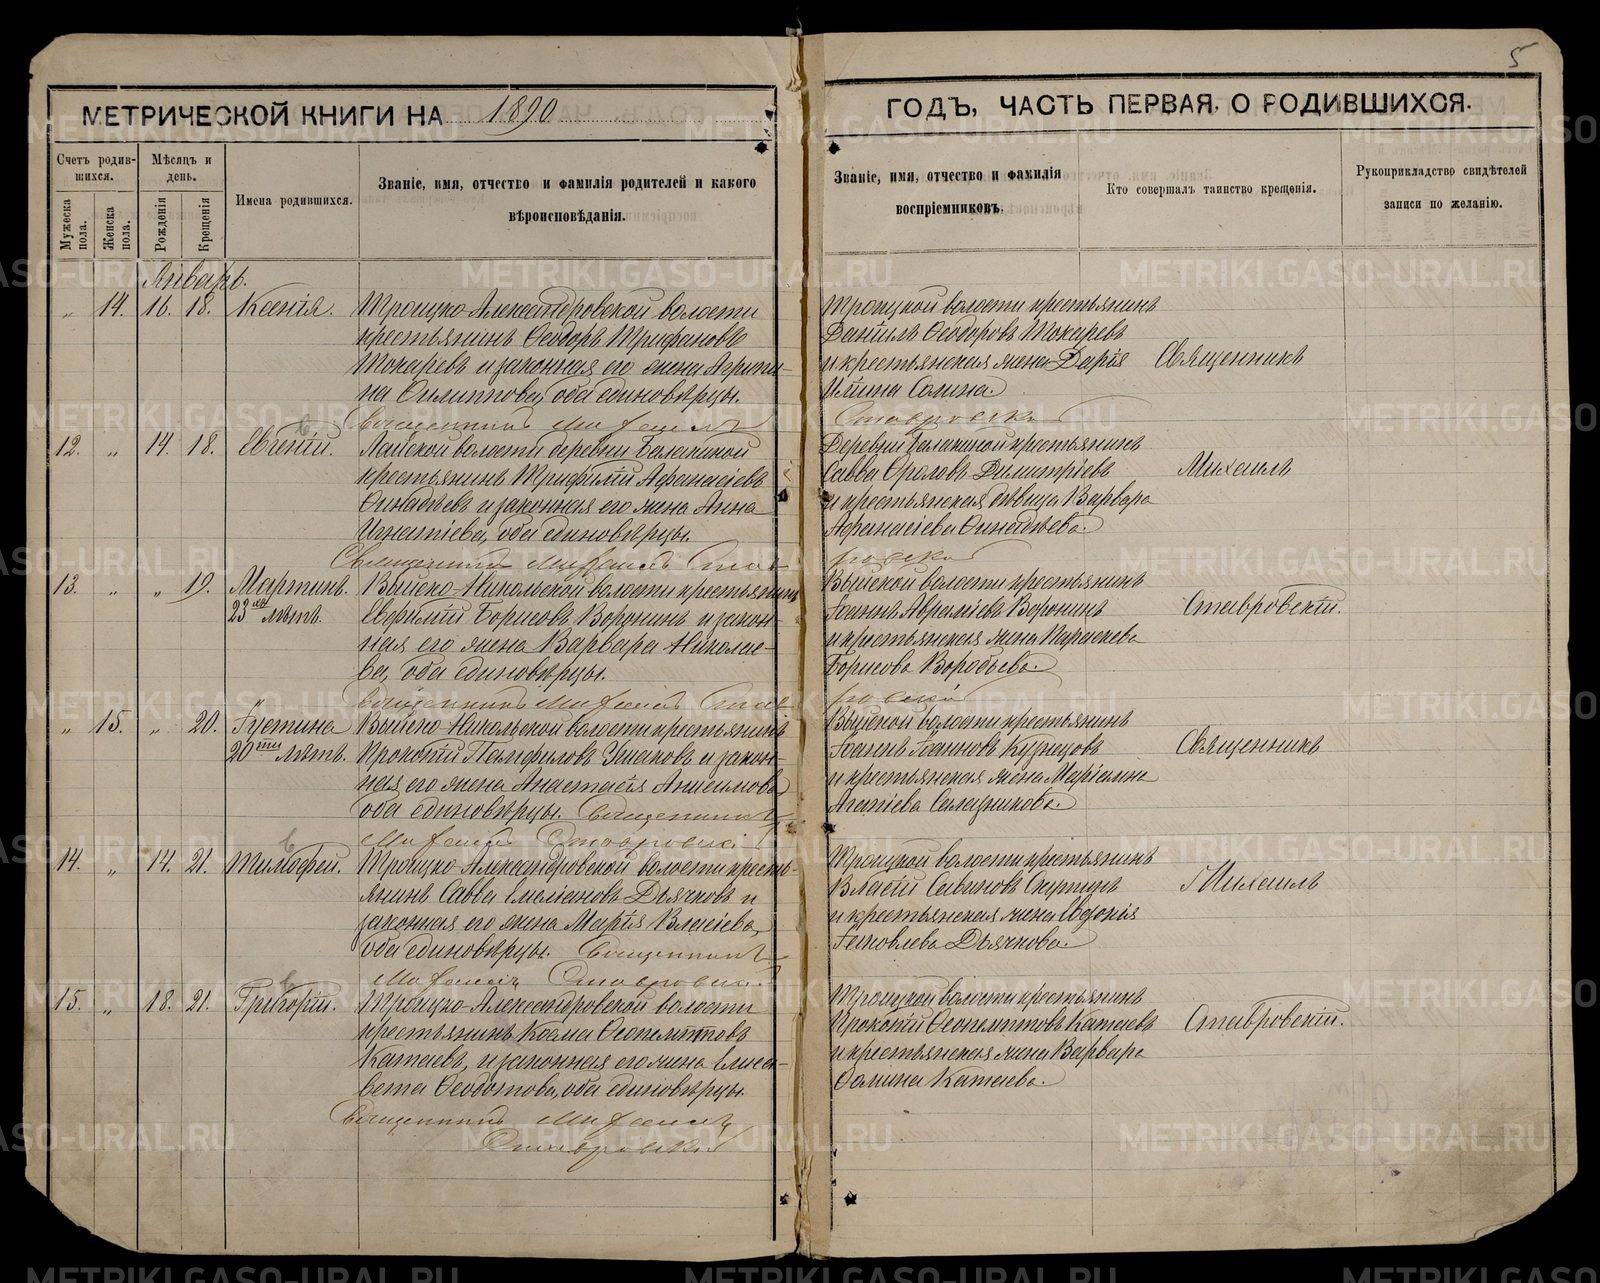 5
МЕТРИЧЕСКОЙ КНИГИ НА 1890
ГОДЪ, ЧАСТЬ ПЕРВАЯ, О РОДИВШИХСЯ.
Счетъ родив-
шихся.
Мужеска пола.
Женска пола.
Мѣсяцъ и
день.
Рожденія
Крещенія
Имена родившихся.
Званіе, имя, отчество и фамилія родителей и какого
вѣроисповѣданія.
Званіе, имя, отчество и фамилія
воспріемниковъ.
Кто совершалъ таинство крещенія.
Рукоприкладство свидѣтелей
записи по желанію.
Январь.
„ 14. 16. 18. Ксенія.
Троицко-Александровской волости
крестьянинъ Ѳеодоръ Трифановъ
Токаревъ и законная его жена Агрипи-
на Филиппова, оба единовѣрцы.
Священникъ Михаилъ
Троицкой волости крестьянинъ
Даніилъ Ѳеодоровъ Токаревъ
и крестьянская жена Дарія
Ильина
Ставровскій
Священникъ
12. „ 14. 18. Евѳимій.
Лайской волости деревни Балакиной
крестьянинъ Трифилій Аѳанасіевъ
и законная его жена Анна
Игнатіева, оба единовѣрцы.
Священникъ Михаилъ Став-
Деревни Балакиной крестьянинъ
Савва Фроловъ Димитріевъ
и крестьянская дѣвица Варвара
Аѳанасіева
ровскій
Михаилъ
13. „ „ 19. Мартинъ.
23 лѣтъ.
Выйско-Никольской волости крестьянинъ
Евфимій Борисовъ Воронинъ и закон-
ная его жена Варвара Николае-
ва, оба единовѣрцы.
Священникъ Михаилъ Став-
Выйской волости крестьянинъ
Іоаннъ Авраміевъ Воронинъ
и крестьянская жена Параскева
Борисова Воробьева.
ровскій
Ставровскій.
„ 15. „ 20. Іустина
20ти лѣтъ.
Выйско-Никольской волости крестьянинъ
Прокопій Памфиловъ Ушаковъ и закон-
ная его жена Анастасія Анисимова
оба единовѣрцы. Священникъ
Михаилъ Ставровскій
Выйской волости крестьянинъ
Іоаннъ Іоанновъ Кузнецовъ
и крестьянская жена Маріамна
Агапіева
Священникъ
14. „ 14. 21. Тимоѳей.
Троицко-Александровской волости кресть-
янинъ Савва Емеліановъ Дьячковъ и
законная его жена Марія Власіева,
оба единовѣрцы. Священникъ
Михаилъ Ставровскій
Троицкой волости крестьянинъ
Власій Савиновъ
и крестьянская жена Евдокія
Іаковлева Дьячкова.
Михаилъ
15. „ 18. 21. Григорій.
Троицко-Александровской волости
крестьянинъ Косма Ѳеопемптовъ
Катаевъ, и законная его жена Елиса-
вета Ѳеодотова, оба единовѣрцы.
Священникъ Михаилъ
Ставровскій
Троицкой волости крестьянинъ
Прокопій Ѳеопемптовъ Катаевъ
и крестьянская жена Варвара
Ѳомина Катаева.
Ставровскій.
METRIKI.GASO-URAL.RU